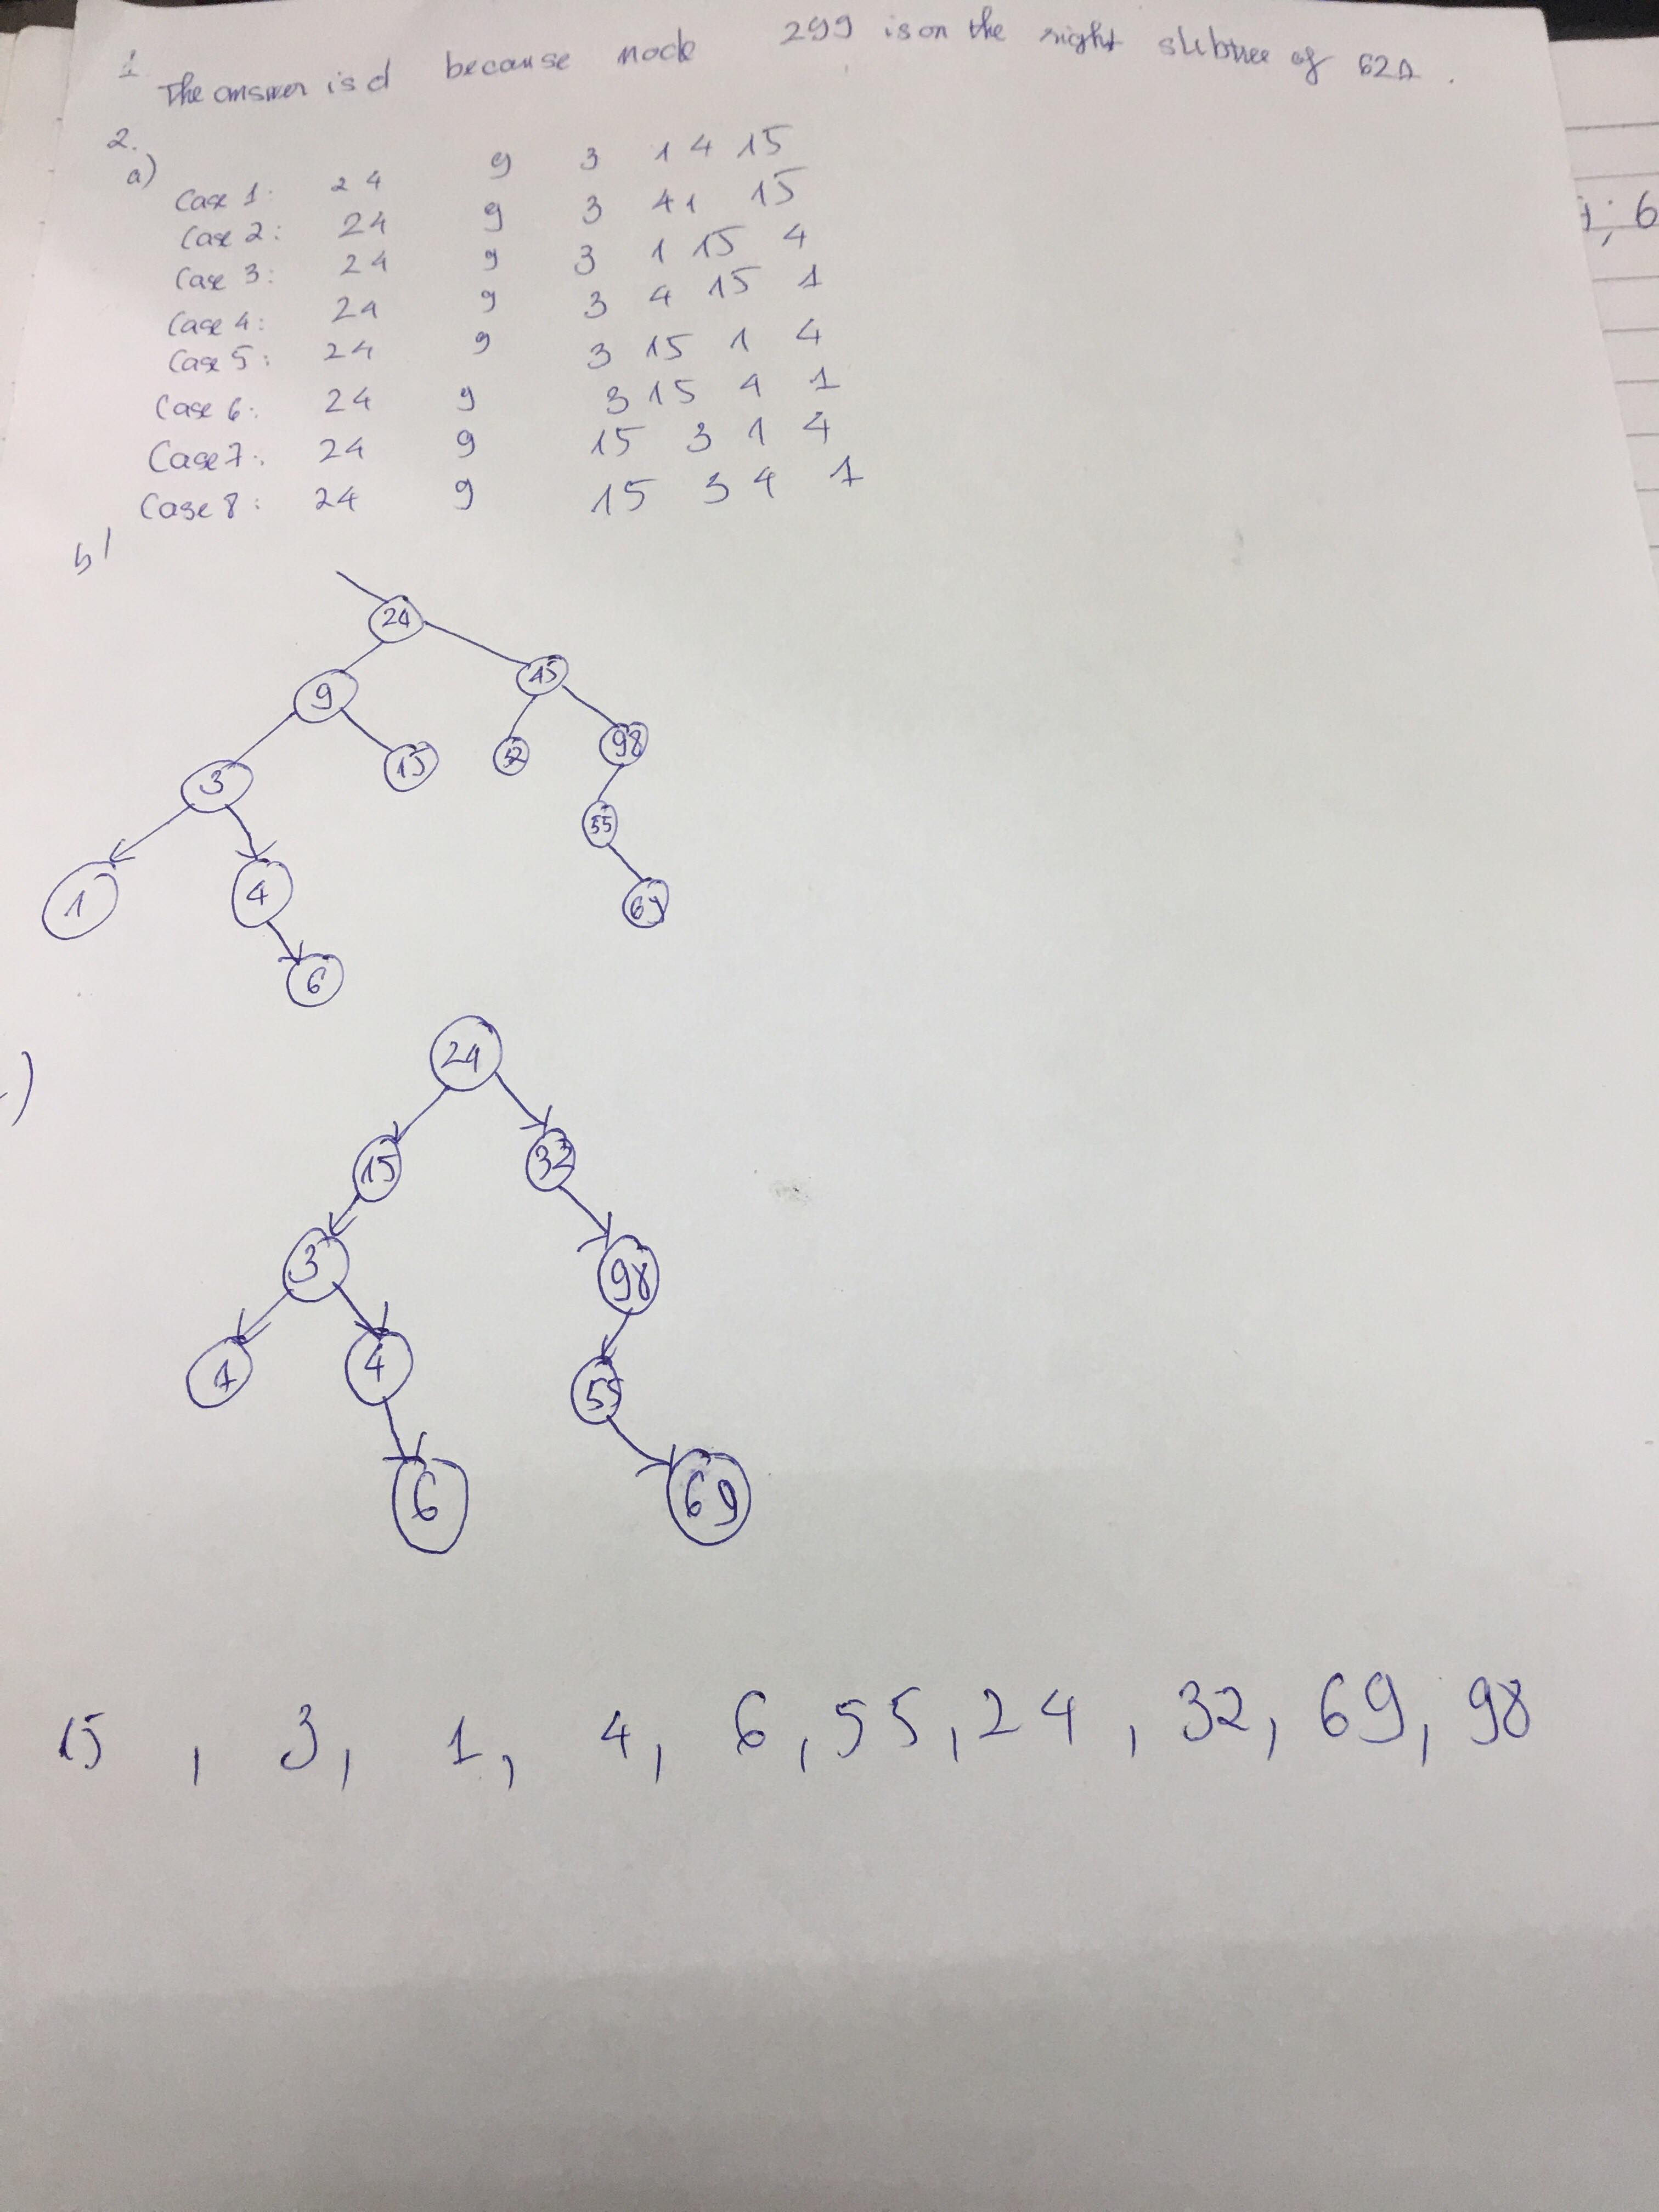 1.
The answer is d because node 299 is on the right subtree of 621 .
2.
a)
Case 1: 24 9 3 1 4 15
Case 2: 24 9 3 4 1 15
Case 3: 24 9 3 1 15 4
Case 4: 24 9 3 4 15 1
Case 5: 24 9 3 15 1 4
Case 6: 24 9 3 15 4 1
Case 7: 24 9 15 3 1 4
Case 8: 24 9 15 3 4 1
; 6
b)
24
9 45
3 15 32 98
55
1 4 69
6
)
24
15 32
3 98
1 4 55
6 69
15 , 3, 1, 4, 6, 55, 24 , 32, 69, 98